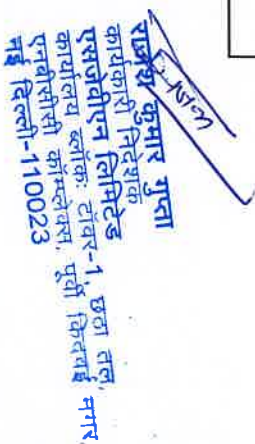 राजेश कुमार गुप्ता
कार्यकारी निदेशक
एसजेवीएन लिमिटेड
कार्यालय ब्लॉकः टॉवर-1, छठा तल,
एनबीसीसी कॉम्प्लेक्स, पूर्वी किदवई नगर,
नई दिल्ली-110023